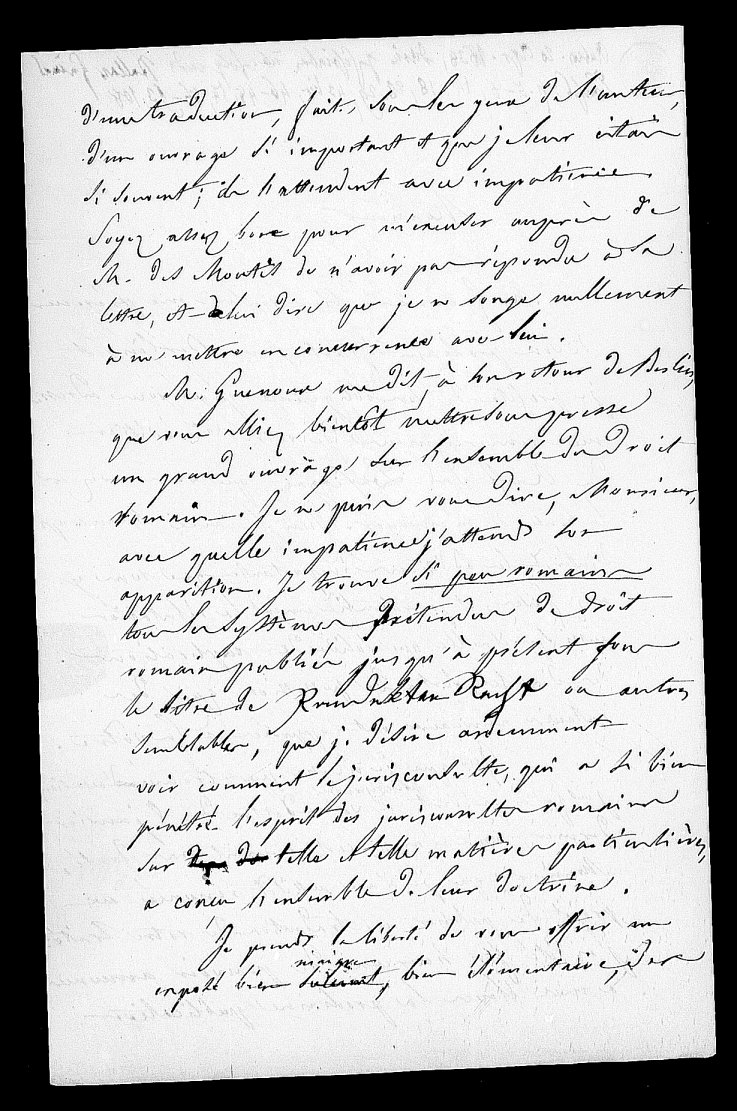 d'une traduction, faite sous les yeux de l'auteur,
d'un ouvrage si important et que je leur citais
si souvent; ils l'attendent avec impatience.
Soyez assez bon pour m'excuser auprès de
M. des Moutis de n'avoir pas répondu à sa
lettre, et de lui dire que je ne songe nullement
à me mettre en concurrence avec lui.
M. Guenoux me dit, à son retour de Berlin,
que vous alliez bientôt mettre sous presse
un grand ouvrage sur l'ensemble du Droit
romain. Je ne puis vous dire, Monsieur,
avec quelle impatience j'attends son
apparition. Je trouve si peu romains
tous les systèmes prétendus de droit
romain publiés jusqu'à présent sous
le titre de Pandekten Recht ou autres
semblables, que je désire ardemment
voir comment le jurisconsulte, qui a si bien
pénétré l'esprit des jurisconsultes romains
sur telle et telle matières particulières,
a conçu l'ensemble de leur doctrine.
Je prends la liberté de vous offrir un
exposé bien, bien élémentaire, des